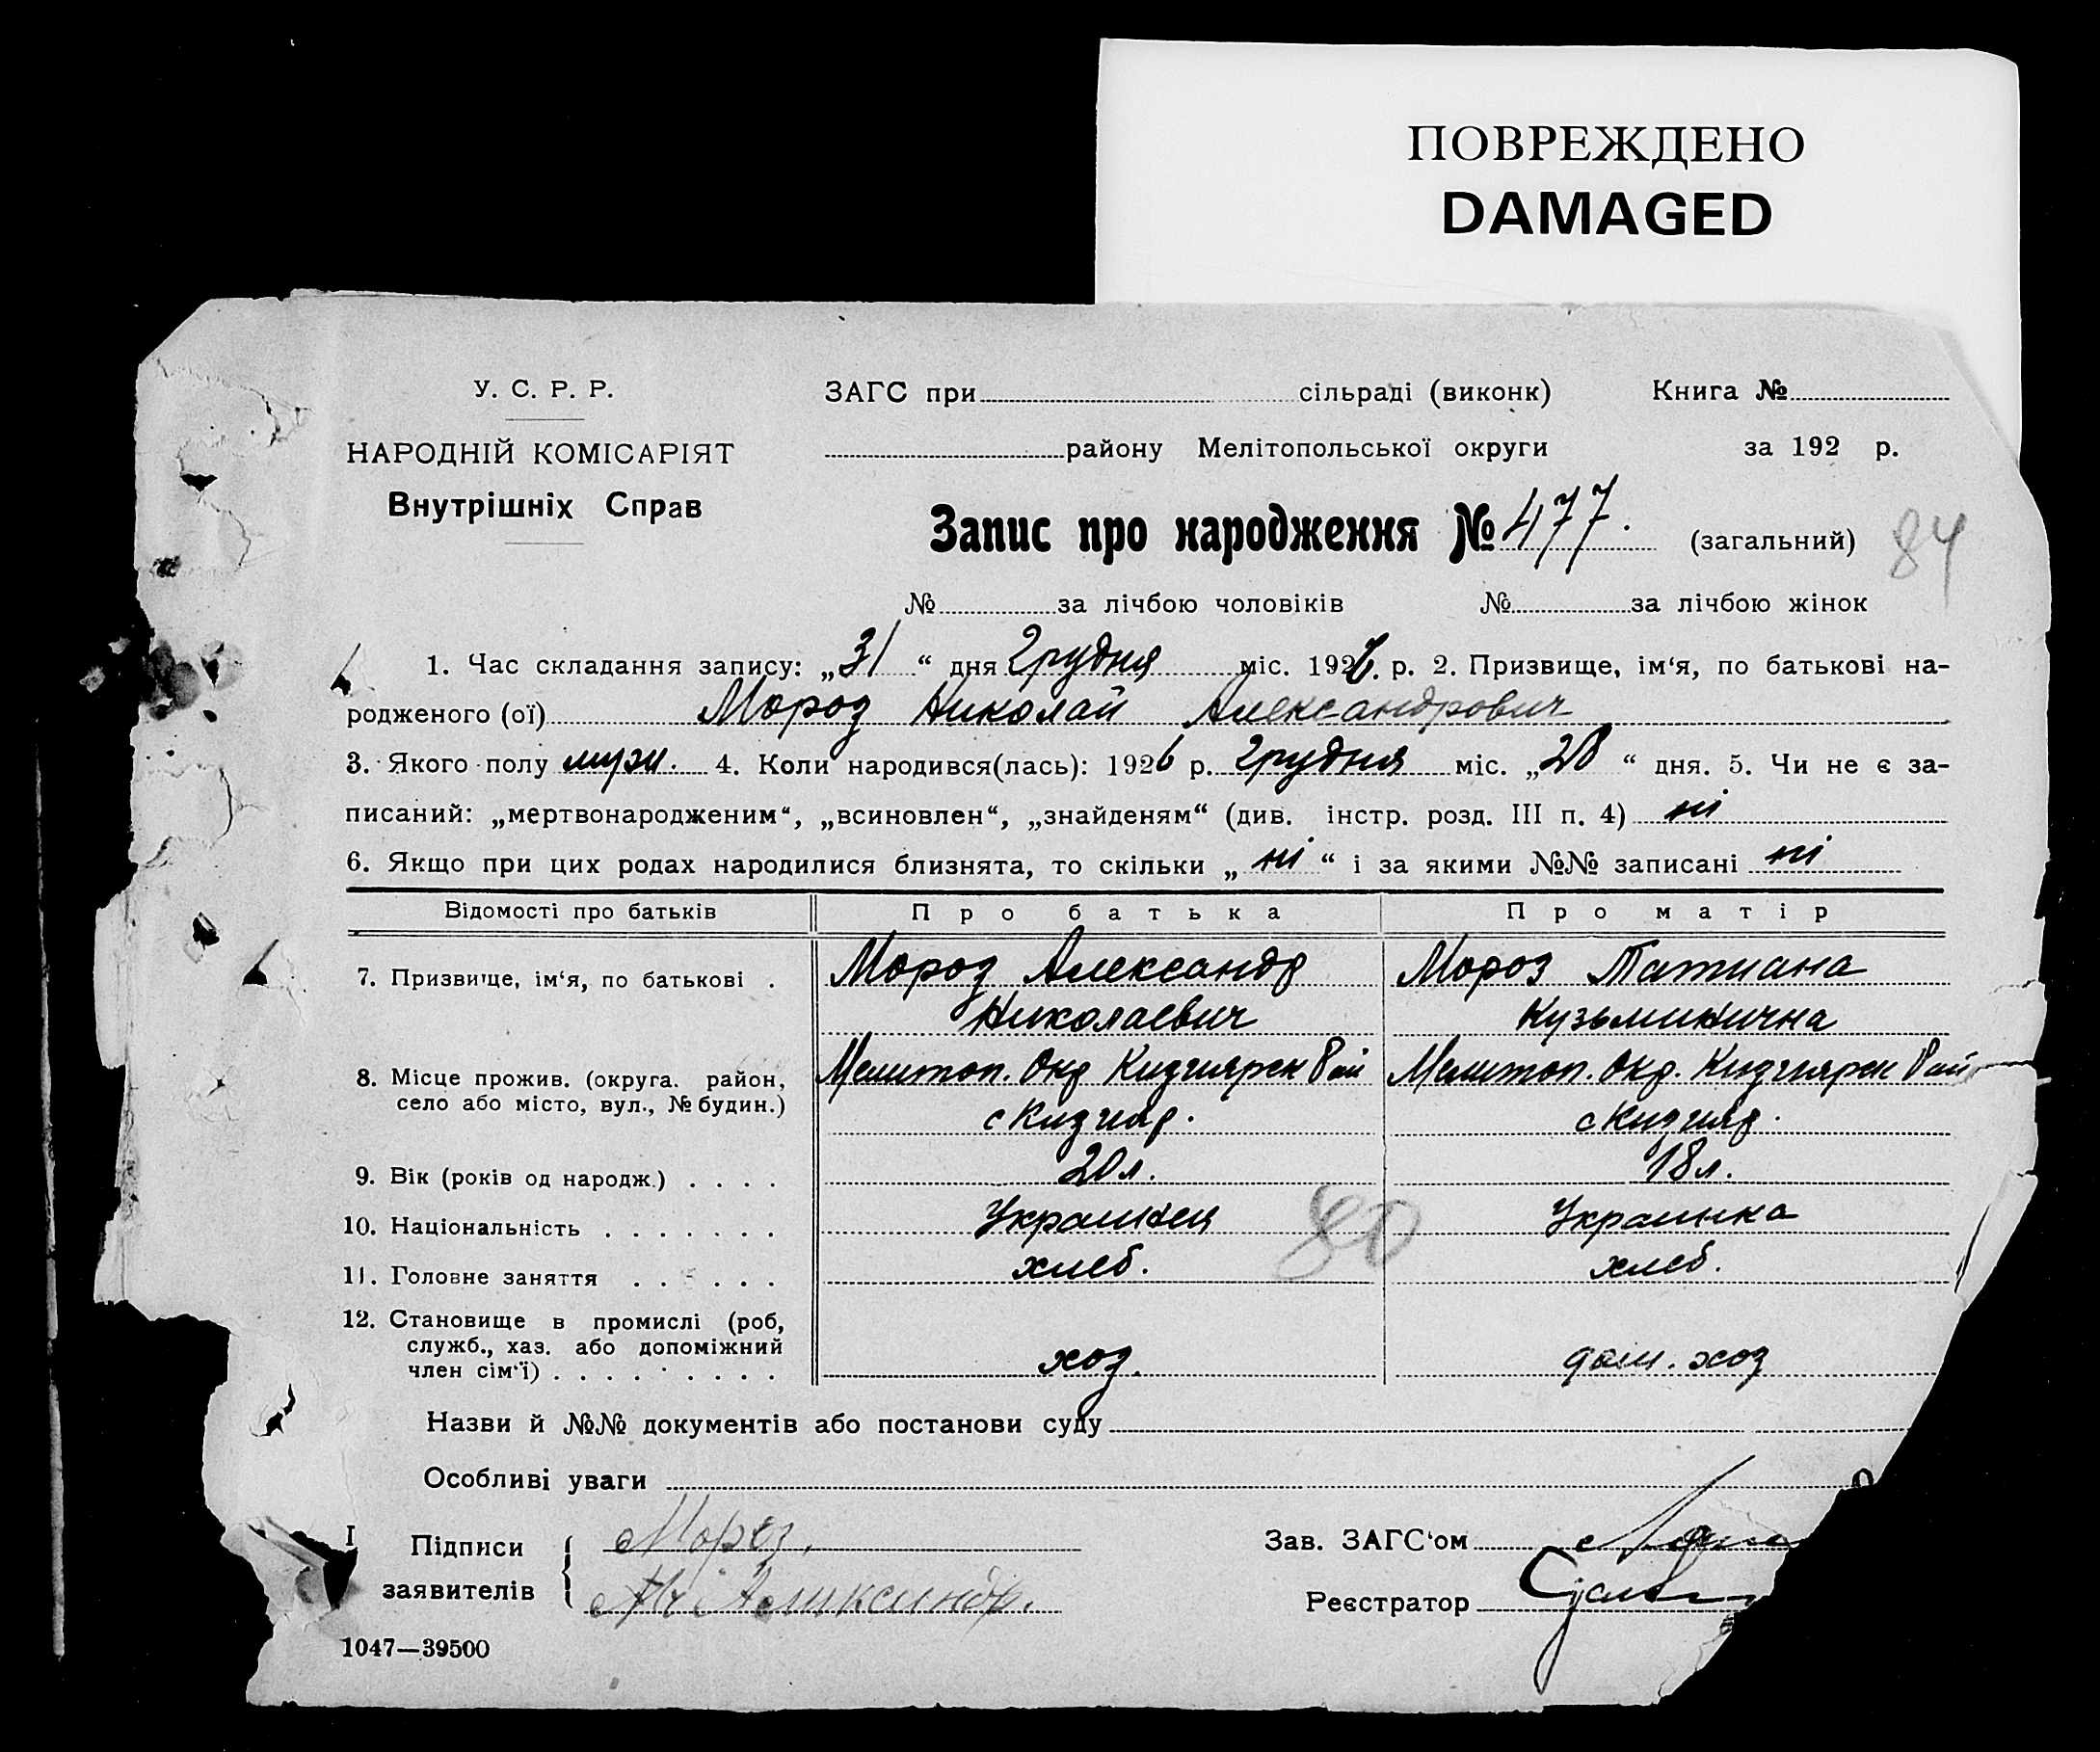 ПОВРЕЖДЕНО
DAMAGED
У. С. Р. Р.
НАРОДНІЙ КОМІСАРІЯТ
Внутрішніх Справ
ЗАГС при сільраді (виконк) Книга №
району Мелітопольської округи за 192 р.
Запис про народження № 477. (загальний) 84
№ за лічбою чоловіків № за лічбою жінок
1. Час складання запису: „31“ дня Грудня міс. 1926. р. 2. Призвище, ім‘я, по батькові на-
родженого (ої) Мороз Николай Александрович
3. Якого полу муж. 4. Коли народився(лась): 1926 р. Грудня міс. „28“ дня. 5. Чи не є за-
писаний: „мертвонародженим“, „всиновлен“, „знайденям“ (див. інстр. розд. III п. 4) ні
6. Якщо при цих родах народилися близнята, то скільки „ні“ і за якими №№ записані ні
Відомості про батьків Про батька Про матір
7. Призвище, ім‘я, по батькові . Мороз Александр Мороз Татиана
Николаевич Кузьминична
8. Місце прожив. (округа. район, Мелитоп. Окр Кизиярск Рай Мелитоп. Окр. Кизиярск Рай
село або місто, вул., № будин.) с Кизияр. с Кизияр.
9. Вік (років од народж.) . . . . 20 л. 18 л.
10. Національність . . . . . . . Украинец Украинка
80
11. Головне заняття . . . . . . хлеб. хлеб.
12. Становище в промислі (роб,
служб., хаз. або допоміжний
член сім‘ї) . . . . . . . . . хоз. дом. хоз
Назви й №№ документів або постанови суду
Особливі уваги
Підписи Мороз. Зав. ЗАГС‘ом
заявителів Реєстратор
1047—39500